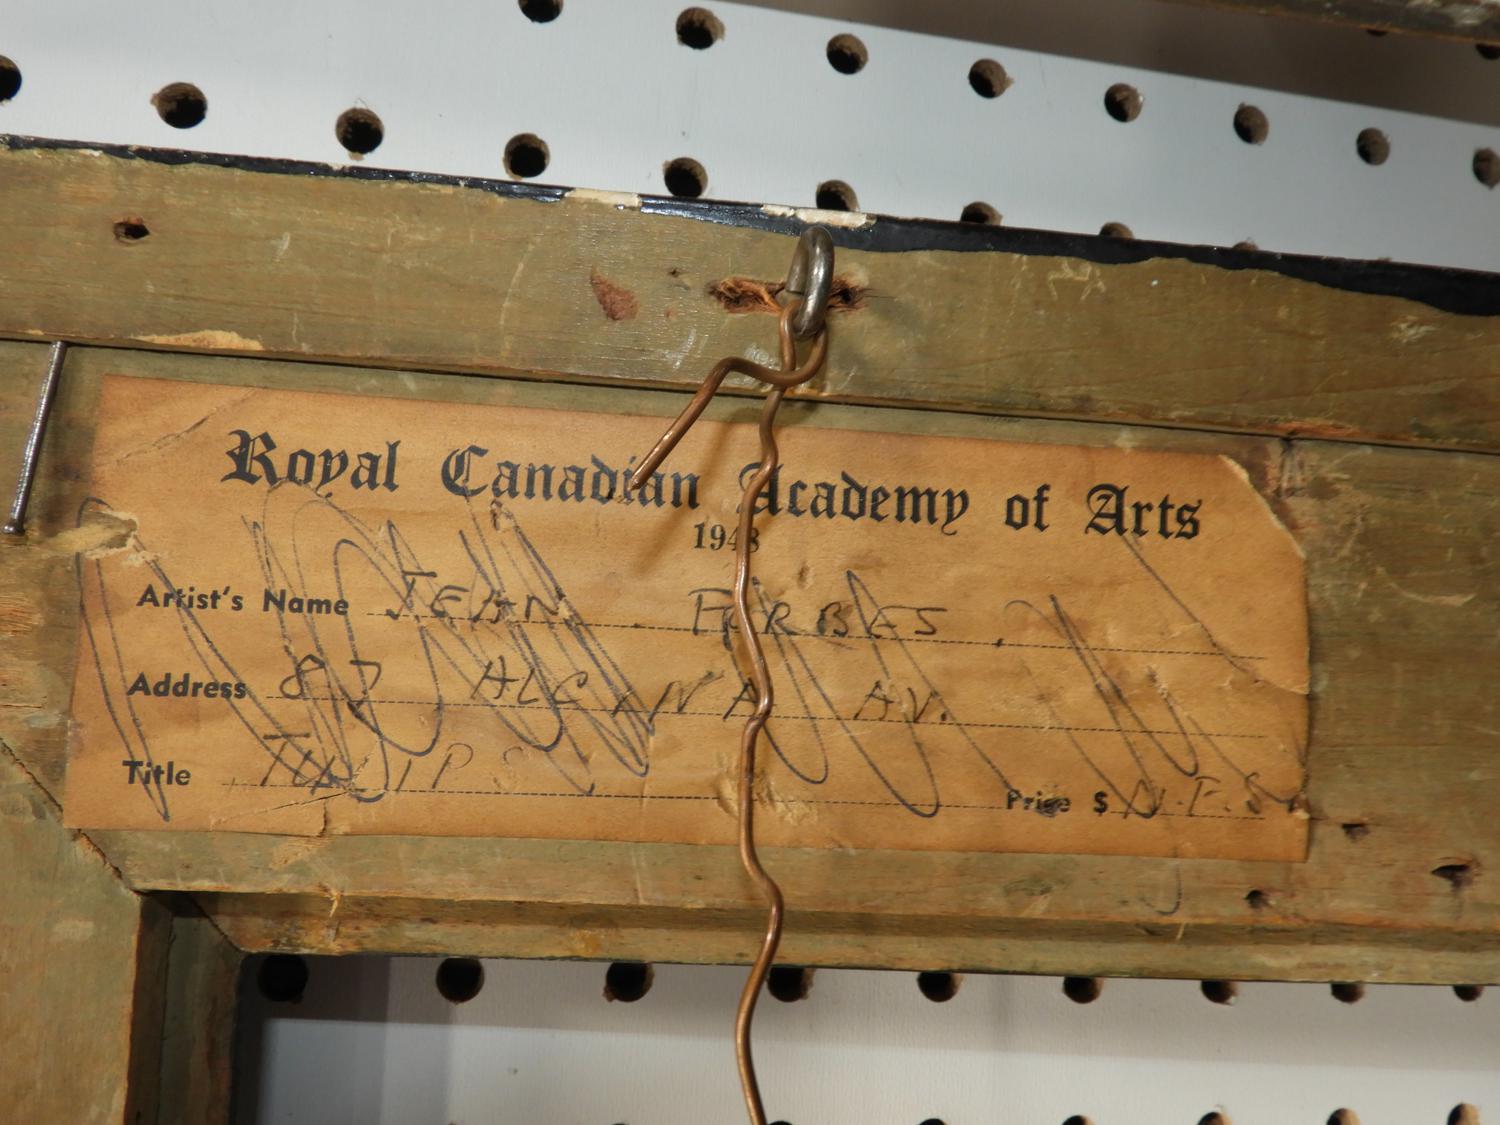 Royal Canadian Academy of Arts
1948
Artist's Name JEAN FORBES.
Address 87 ALCINA AV.
Title TULIPS Price $ N.F.S.